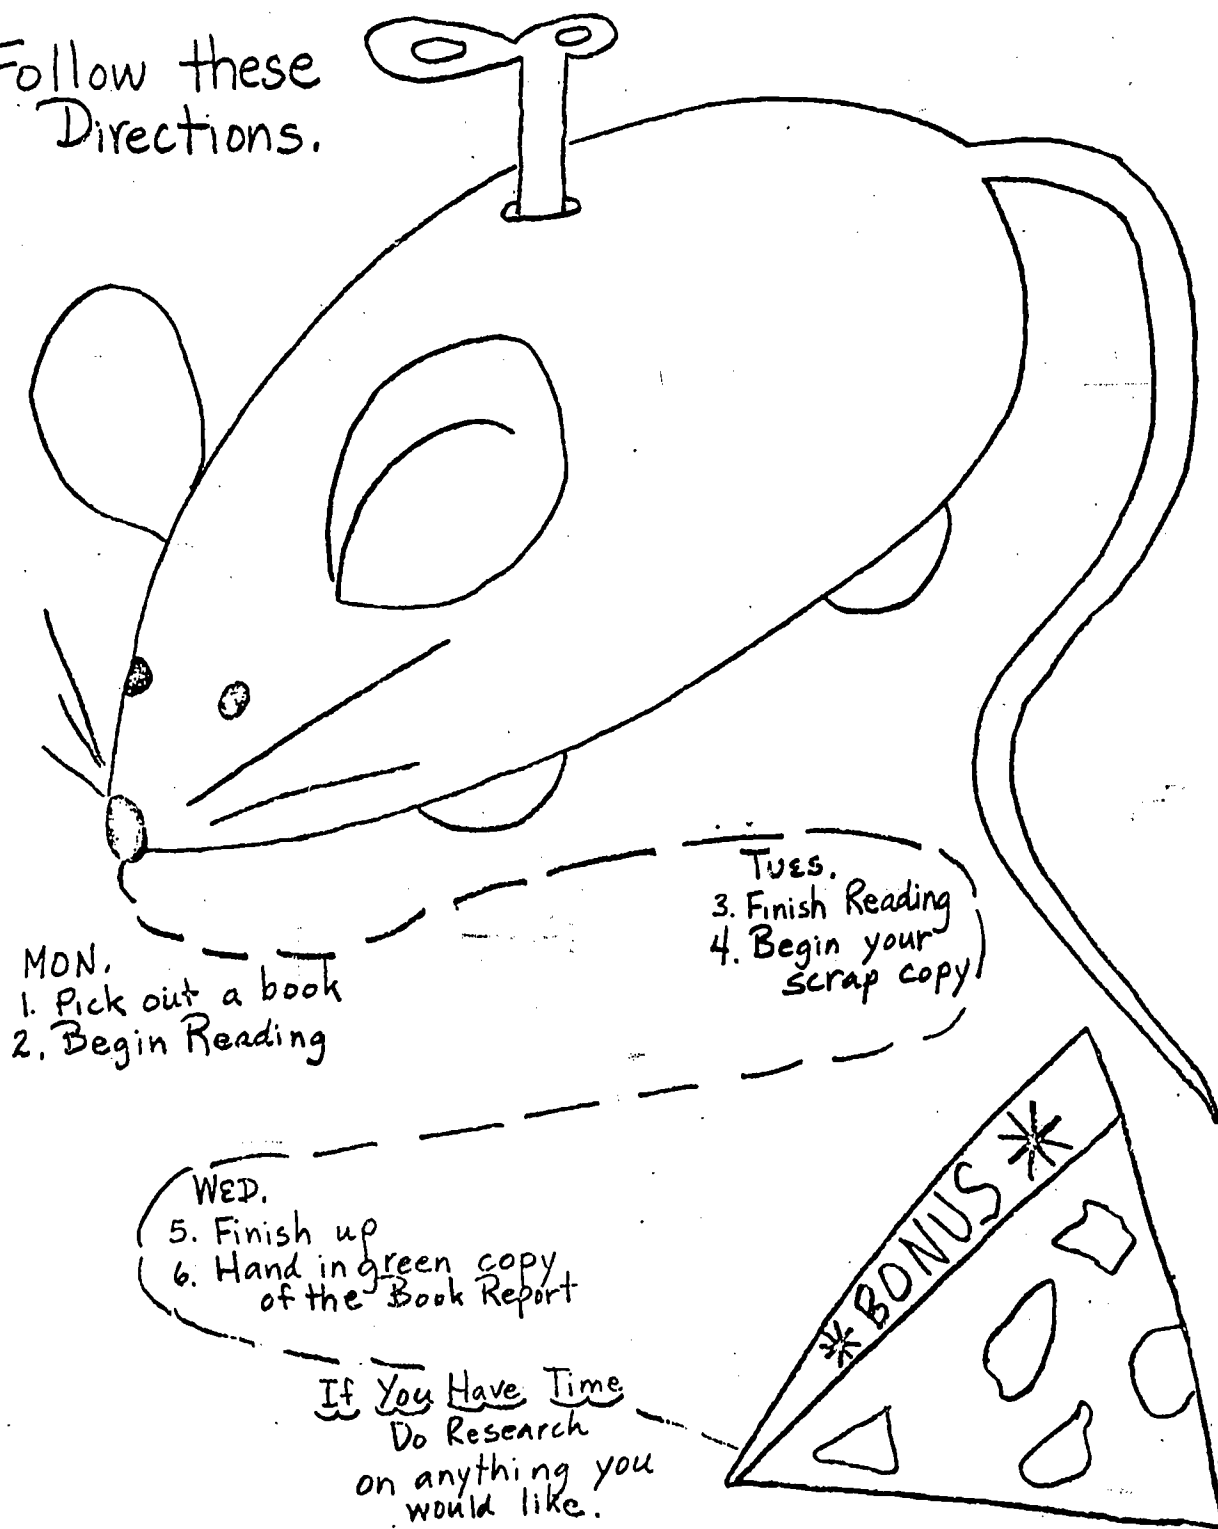 Follow these
Directions.
MON.
1. Pick out a book
2. Begin Reading
TUES.
3. Finish Reading
4. Begin your
scrap copy
WED.
5. Finish up
6. Hand in green copy
of the Book Report
If You Have Time
Do Research
on anything you
would like.
* BONUS *